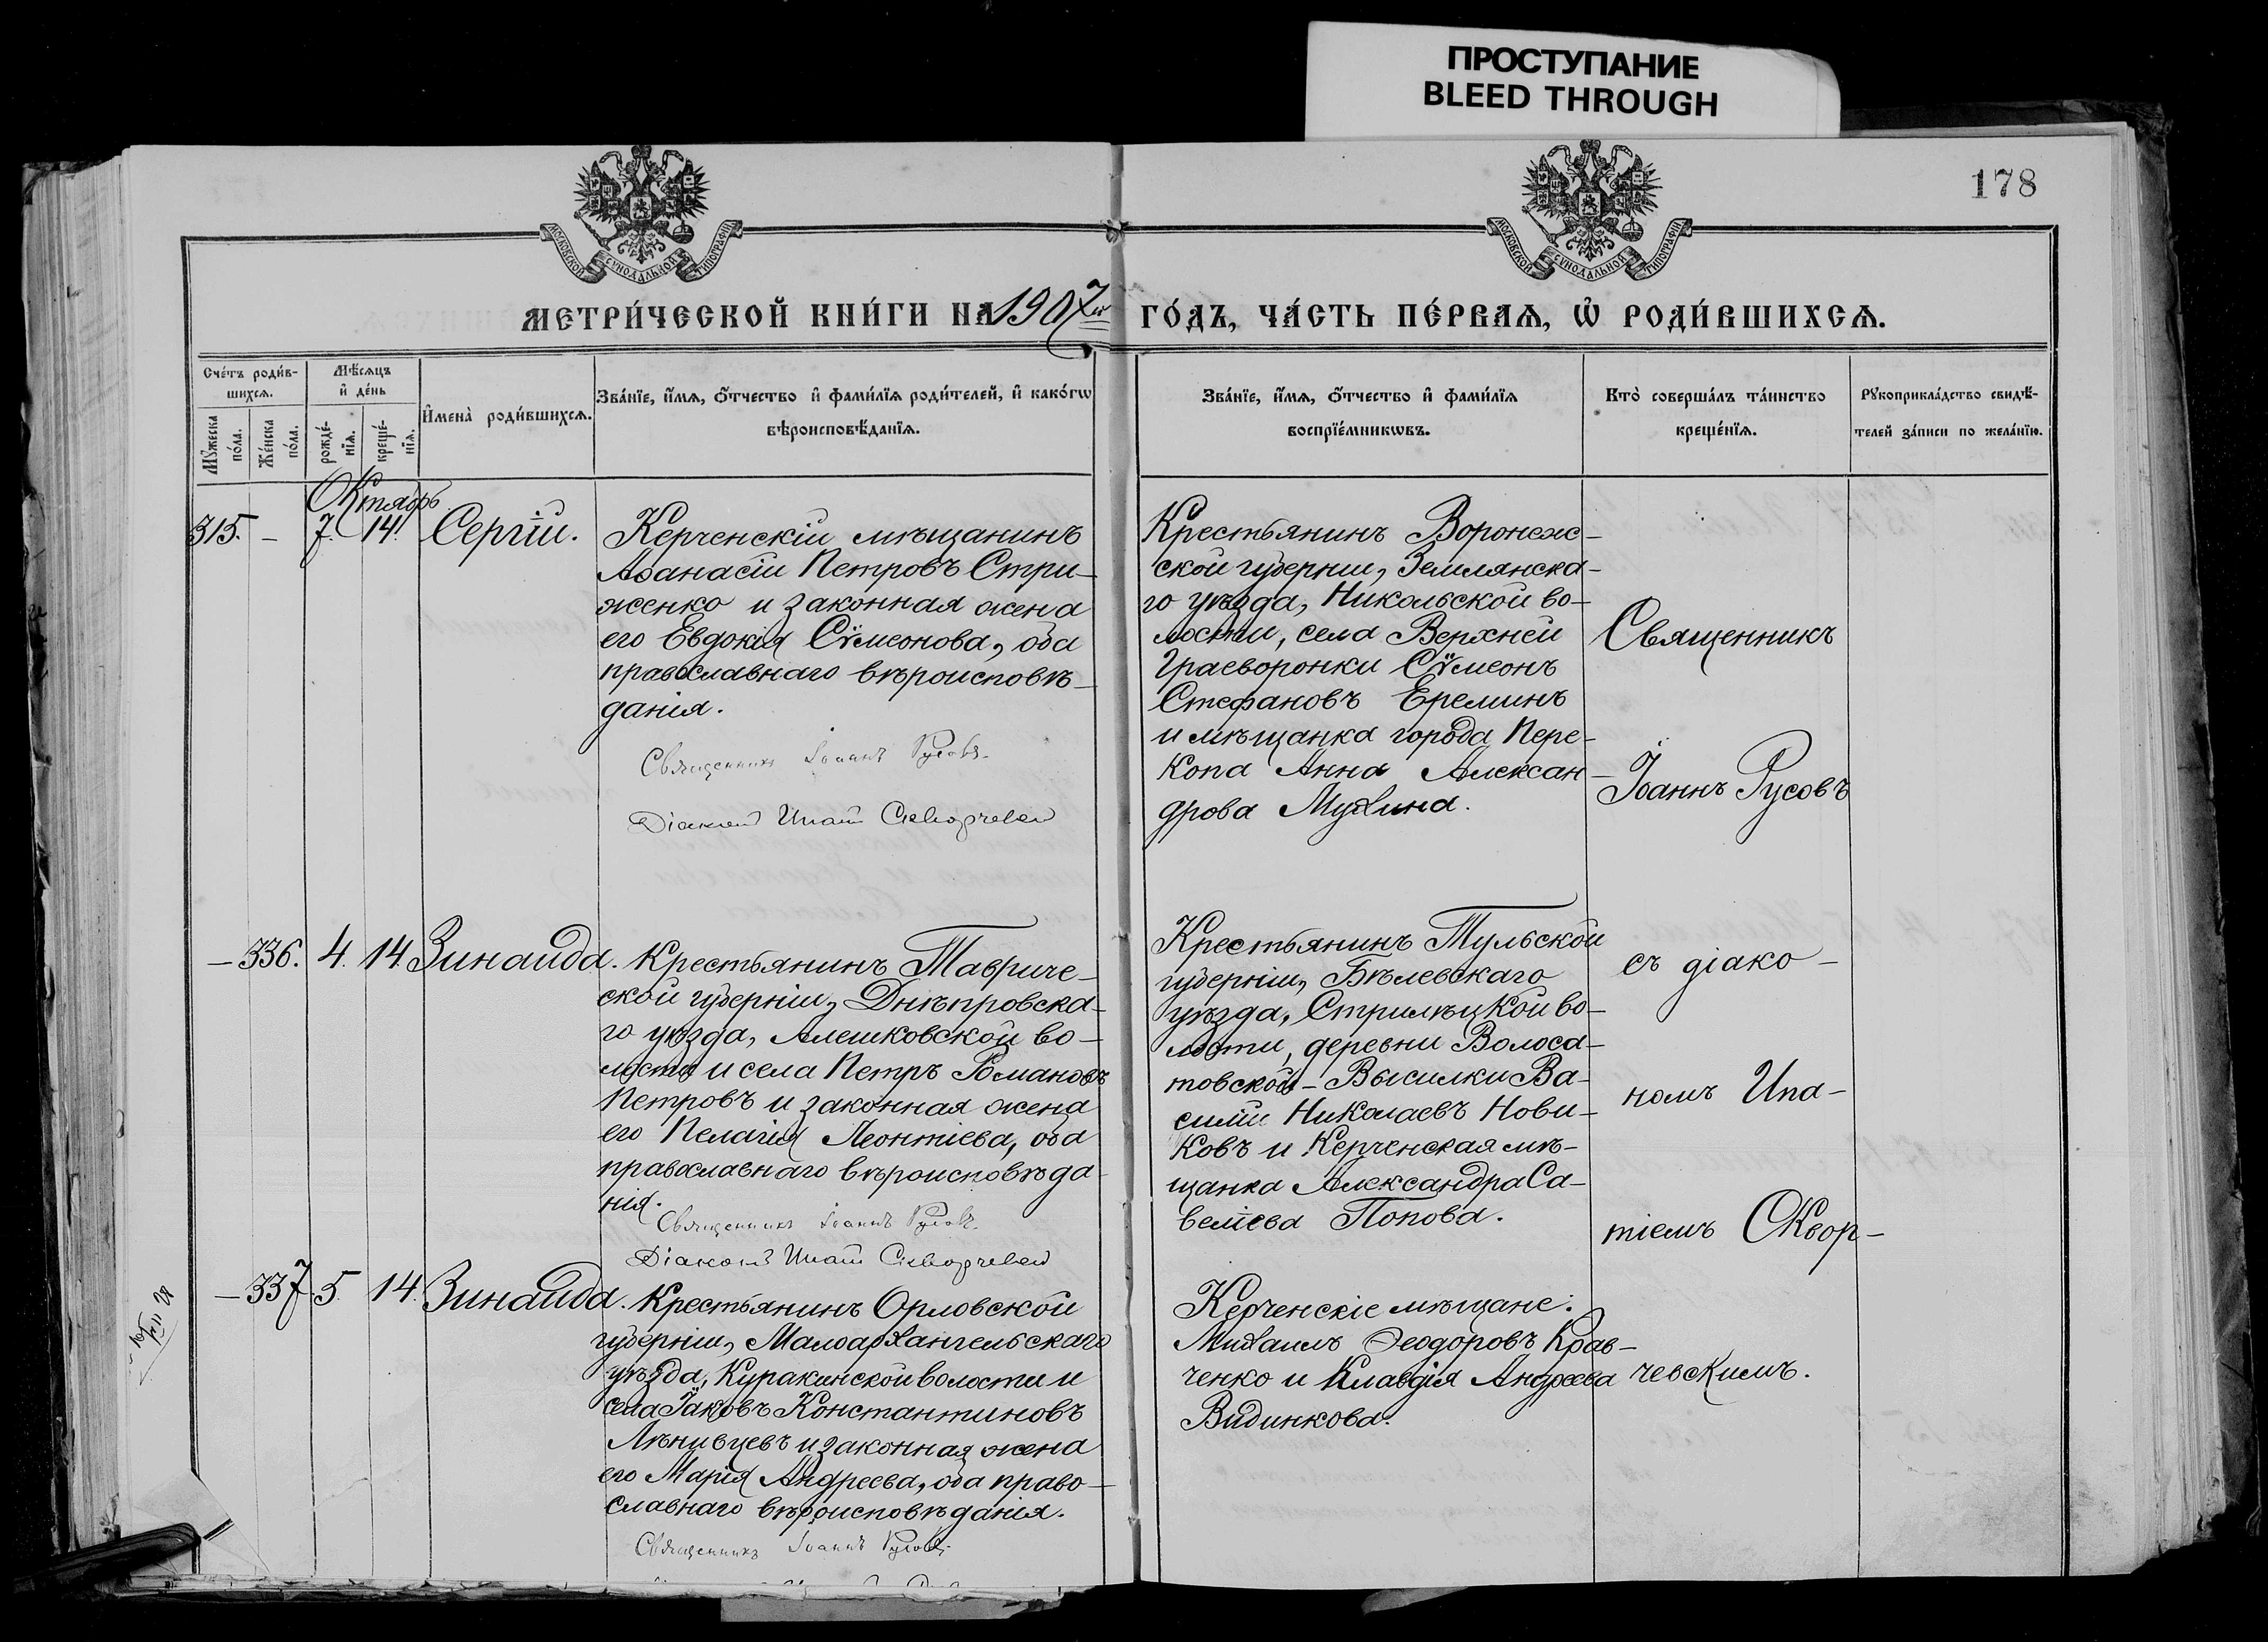 ПРОСТУПАНИЕ
BLEED THROUGH
178
МОСКОВСКОЙ СУНОДАЛЬНОЙ ТИПОГРАФІИ
МОСКОВСКОЙ СУНОДАЛЬНОЙ ТИПОГРАФІИ
МЕТРИ́ЧЕСКОЙ КНИ́ГИ НА 1907й ГО́ДЪ, ЧА́СТЬ ПЕ́РВАѦ, Ѡ҆ РОДИ́ВШИХСѦ.
Сче́тъ роди́в-
шихсѧ.
Мꙋ́жеска по́ла.
Же́нска по́ла.
Мѣ́сѧцъ
и҆ де́нь
рожде́-
нїѧ.
креще́-
нїѧ.
И҆мена̀ роди́вшихсѧ.
Зва́нїе, и҆́мѧ, ѻ҆́тчество и҆ фами́лїѧ роди́телей, и҆ како́гѡ
вѣроисповѣ́данїѧ.
Зва́нїе, и҆́мѧ, ѻ҆́тчество и҆ фами́лїѧ
воспрїе́мникѡвъ.
Кто̀ соверша́лъ та́инство
креще́нїѧ.
Рꙋкоприкла́дство свидѣ́-
телей за́писи по жела́нїю.
Октябрь
315. – 7. 14. Сергій.
Керченскій мѣщанинъ
Аѳанасій Петровъ Стри-
женко и законная жена
его Евдокія Сѵмеонова, оба
православнаго вѣроисповѣ-
данія.
Священникъ Іоаннъ Русовъ
Діаконъ Ипатій Скворчевскій
Крестьянинъ Воронеж-
ской губерніи, Землянска-
го уѣзда, Никольской во-
лости, села Верхней
Граеворонки Сѵмеонъ
Стефановъ Ереминъ
и мѣщанка города Пере-
копа Анна Алексан-
дрова Мухина.
Священникъ
Іоаннъ Русовъ
– 336. 4. 14. Зинаида.
Крестьянинъ Тавриче-
ской губерніи, Днѣпровска-
го уѣзда, Алешковской во-
лости и села Петръ Романовъ
Петровъ и законная жена
его Пелагія Леонтіева, оба
православнаго вѣроисповѣда-
нія.
Священникъ Іоаннъ Русовъ
Діаконъ Ипатій Скворчевскій
Крестьянинъ Тульской
губерніи, Бѣлевскаго
уѣзда, Стрилѣцкой во-
лости, деревни Волоса-
товской-Высилки Ва-
силій Николаевъ Нови-
ковъ и Керченская мѣ-
щанка Александра Са-
веліева Попова.
съ діако-
номъ Ипа-
тіемъ Сквор-
– 337. 5. 14. Зинаида.
Крестьянинъ Орловской
губерніи, Малоархангельскаго
уѣзда, Куракинской волости и
села Іаковъ Константиновъ
Лѣнивцевъ и законная жена
его Марія Андреева, оба право-
славнаго вѣроисповѣданія.
Священникъ Іоаннъ Русовъ
Керченскіе мѣщане:
Михаилъ Ѳеодоровъ Крав-
ченко и Клавдія Андреева
Видинкова.
чевскимъ.